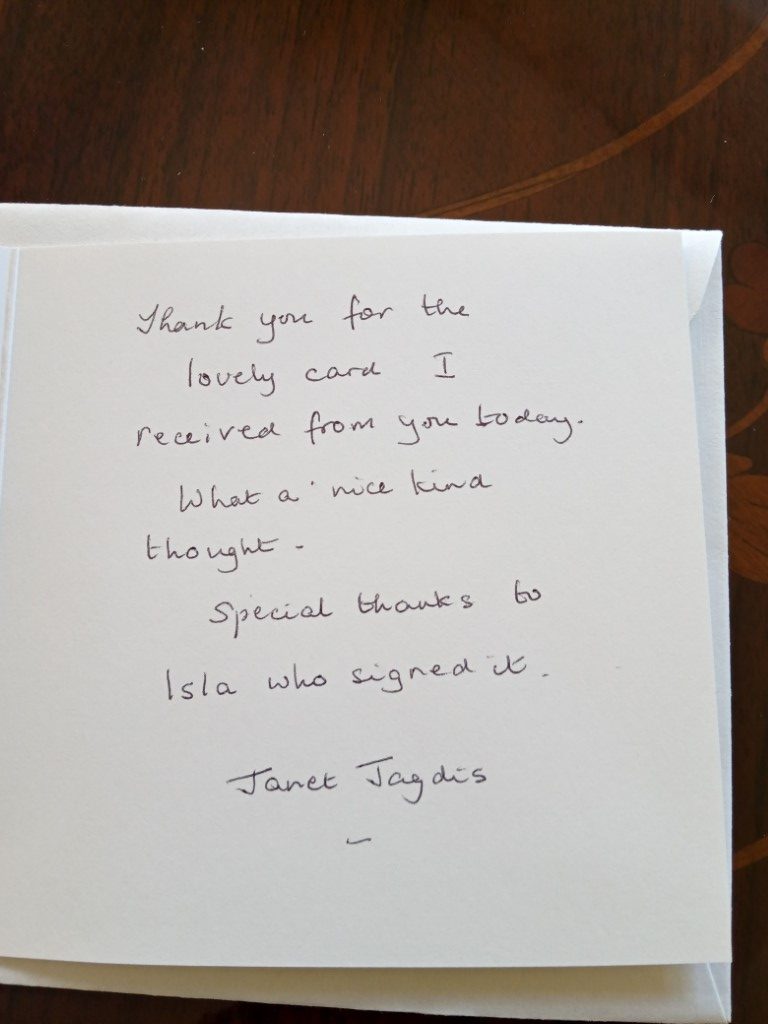 Thank you for the
lovely card I
received from you today.
What a nice kind
thought.
Special thanks to
Isla who signed it.
Janet Jagdis